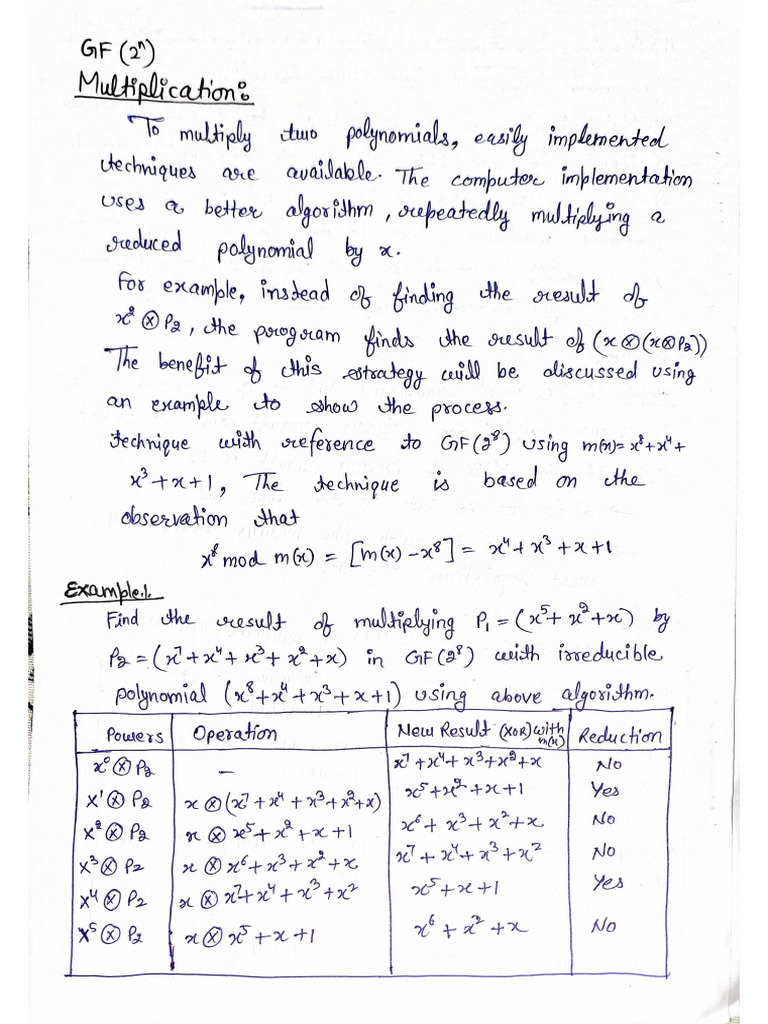 GF (2ⁿ)
Multiplication:
To multiply two polynomials, easily implemented
techniques are available. The computer implementation
uses a better algorithm, repeatedly multiplying a
reduced polynomial by x.
For example, instead of finding the result of
x² ⊗ P₂, the program finds the result of (x⊗(x⊗P₂))
The benefit of this strategy will be discussed using
an example to show the process.
technique with reference to GF(2⁸) using m(x)= x⁸+x⁴+
x³+x+1, The technique is based on the
observation that
x⁸ mod m(x) = [m(x) -x⁸] = x⁴+x³+x+1
Example.1.
Find the result of multiplying P₁ = (x⁵+x²+x) by
P₂ = (x⁷+x⁴+x³+x²+x) in GF(2⁸) with irreducible
polynomial (x⁸+x⁴+x³+x+1) using above algorithm.
Powers Operation New Result (XOR) with m(x) Reduction
x⁰ ⊗ P₂ — x⁷+x⁴+x³+x²+x No
x¹ ⊗ P₂ x⊗(x⁷+x⁴+x³+x²+x) x⁵+x²+x+1 Yes
x² ⊗ P₂ x⊗ x⁵+x²+x+1 x⁶+x³+x²+x No
x³ ⊗ P₂ x⊗ x⁶+x³+x²+x x⁷+x⁴+x³+x² No
x⁴ ⊗ P₂ x⊗ x⁷+x⁴+x³+x² x⁵+x+1 Yes
x⁵ ⊗ P₂ x⊗ x⁵+x+1 x⁶+x²+x No